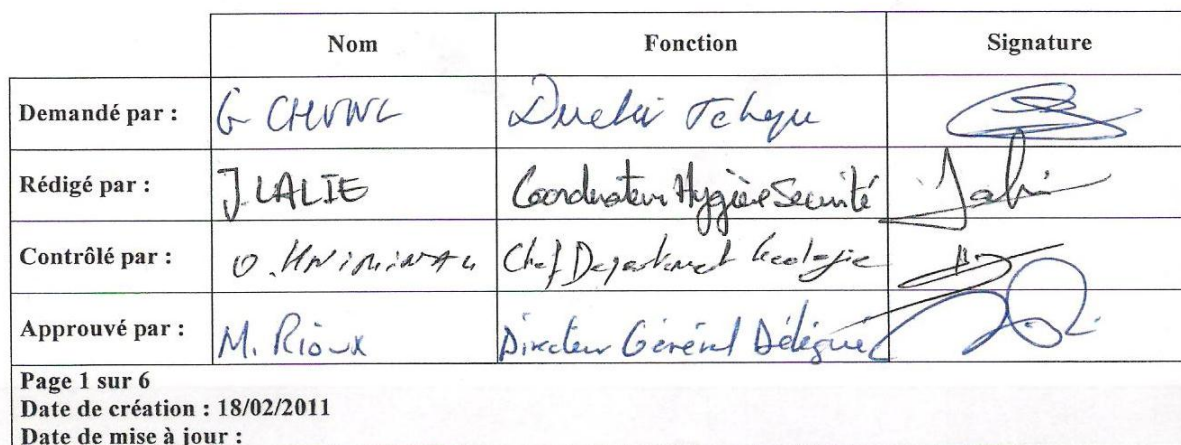 Nom Fonction Signature
Demandé par : G CHUNC
Rédigé par : J. LALIE Coordinateur Hygiène Sécurité
Contrôlé par : O. Chef Departement Geologie
Approuvé par : M. Rioux Directeur Général Délégué
Page 1 sur 6
Date de création : 18/02/2011
Date de mise à jour :